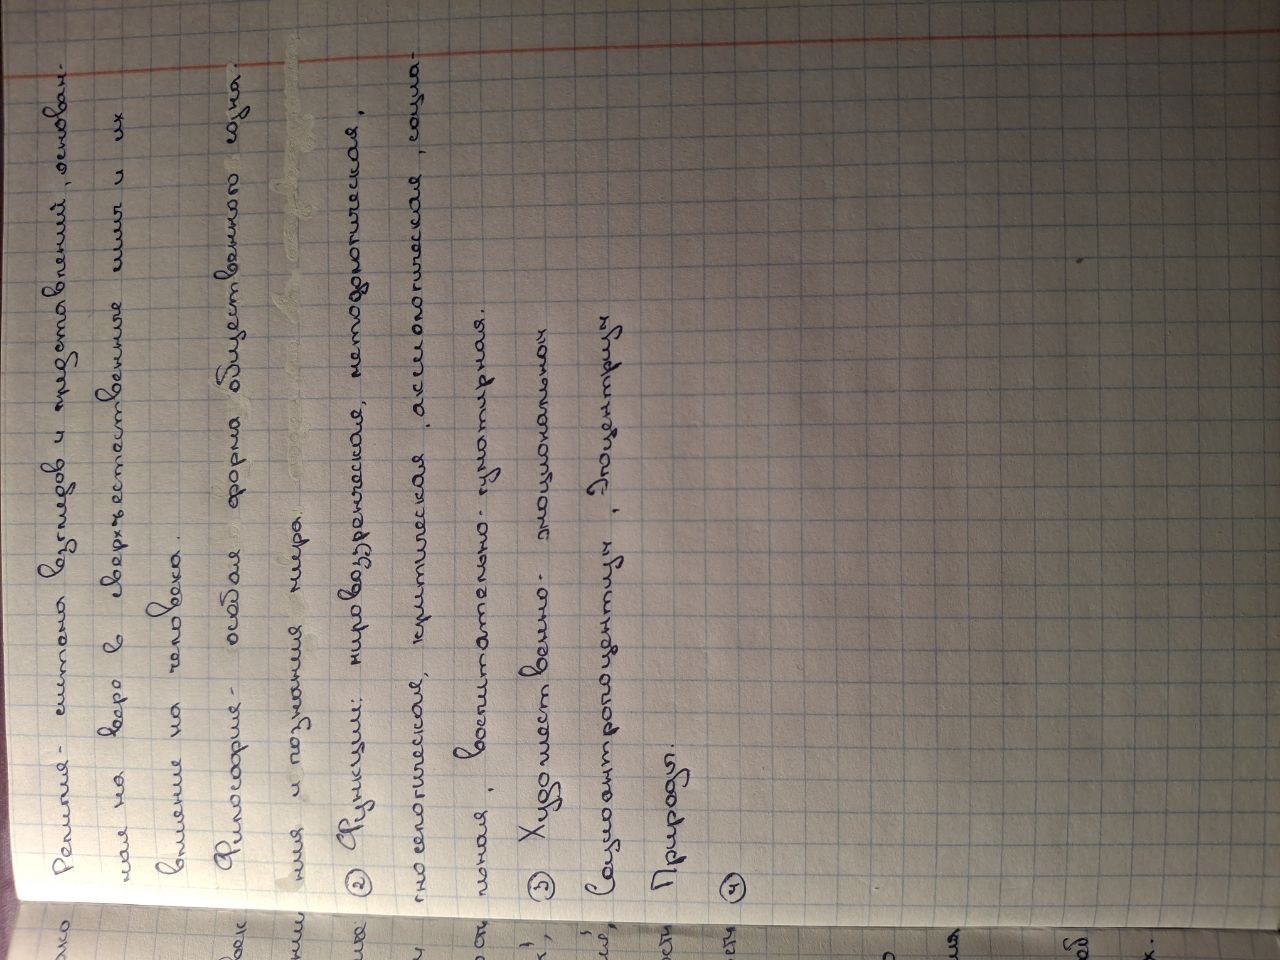 Религия - система взглядов и представлений, основан-
ная на вере в сверхъестественные силы и их
влияние на человека.
Философия - особая форма общественного созна-
ния и познания мира.
② Функции: мировоззренческая, методологическая,
гносеологическая, критическая, аксиологическая, социа-
льная, воспитательно-гуматирная.
③ Художественно-эмоциональный
Социоантропоцентрич, Эгоцентрич
Природы.
④